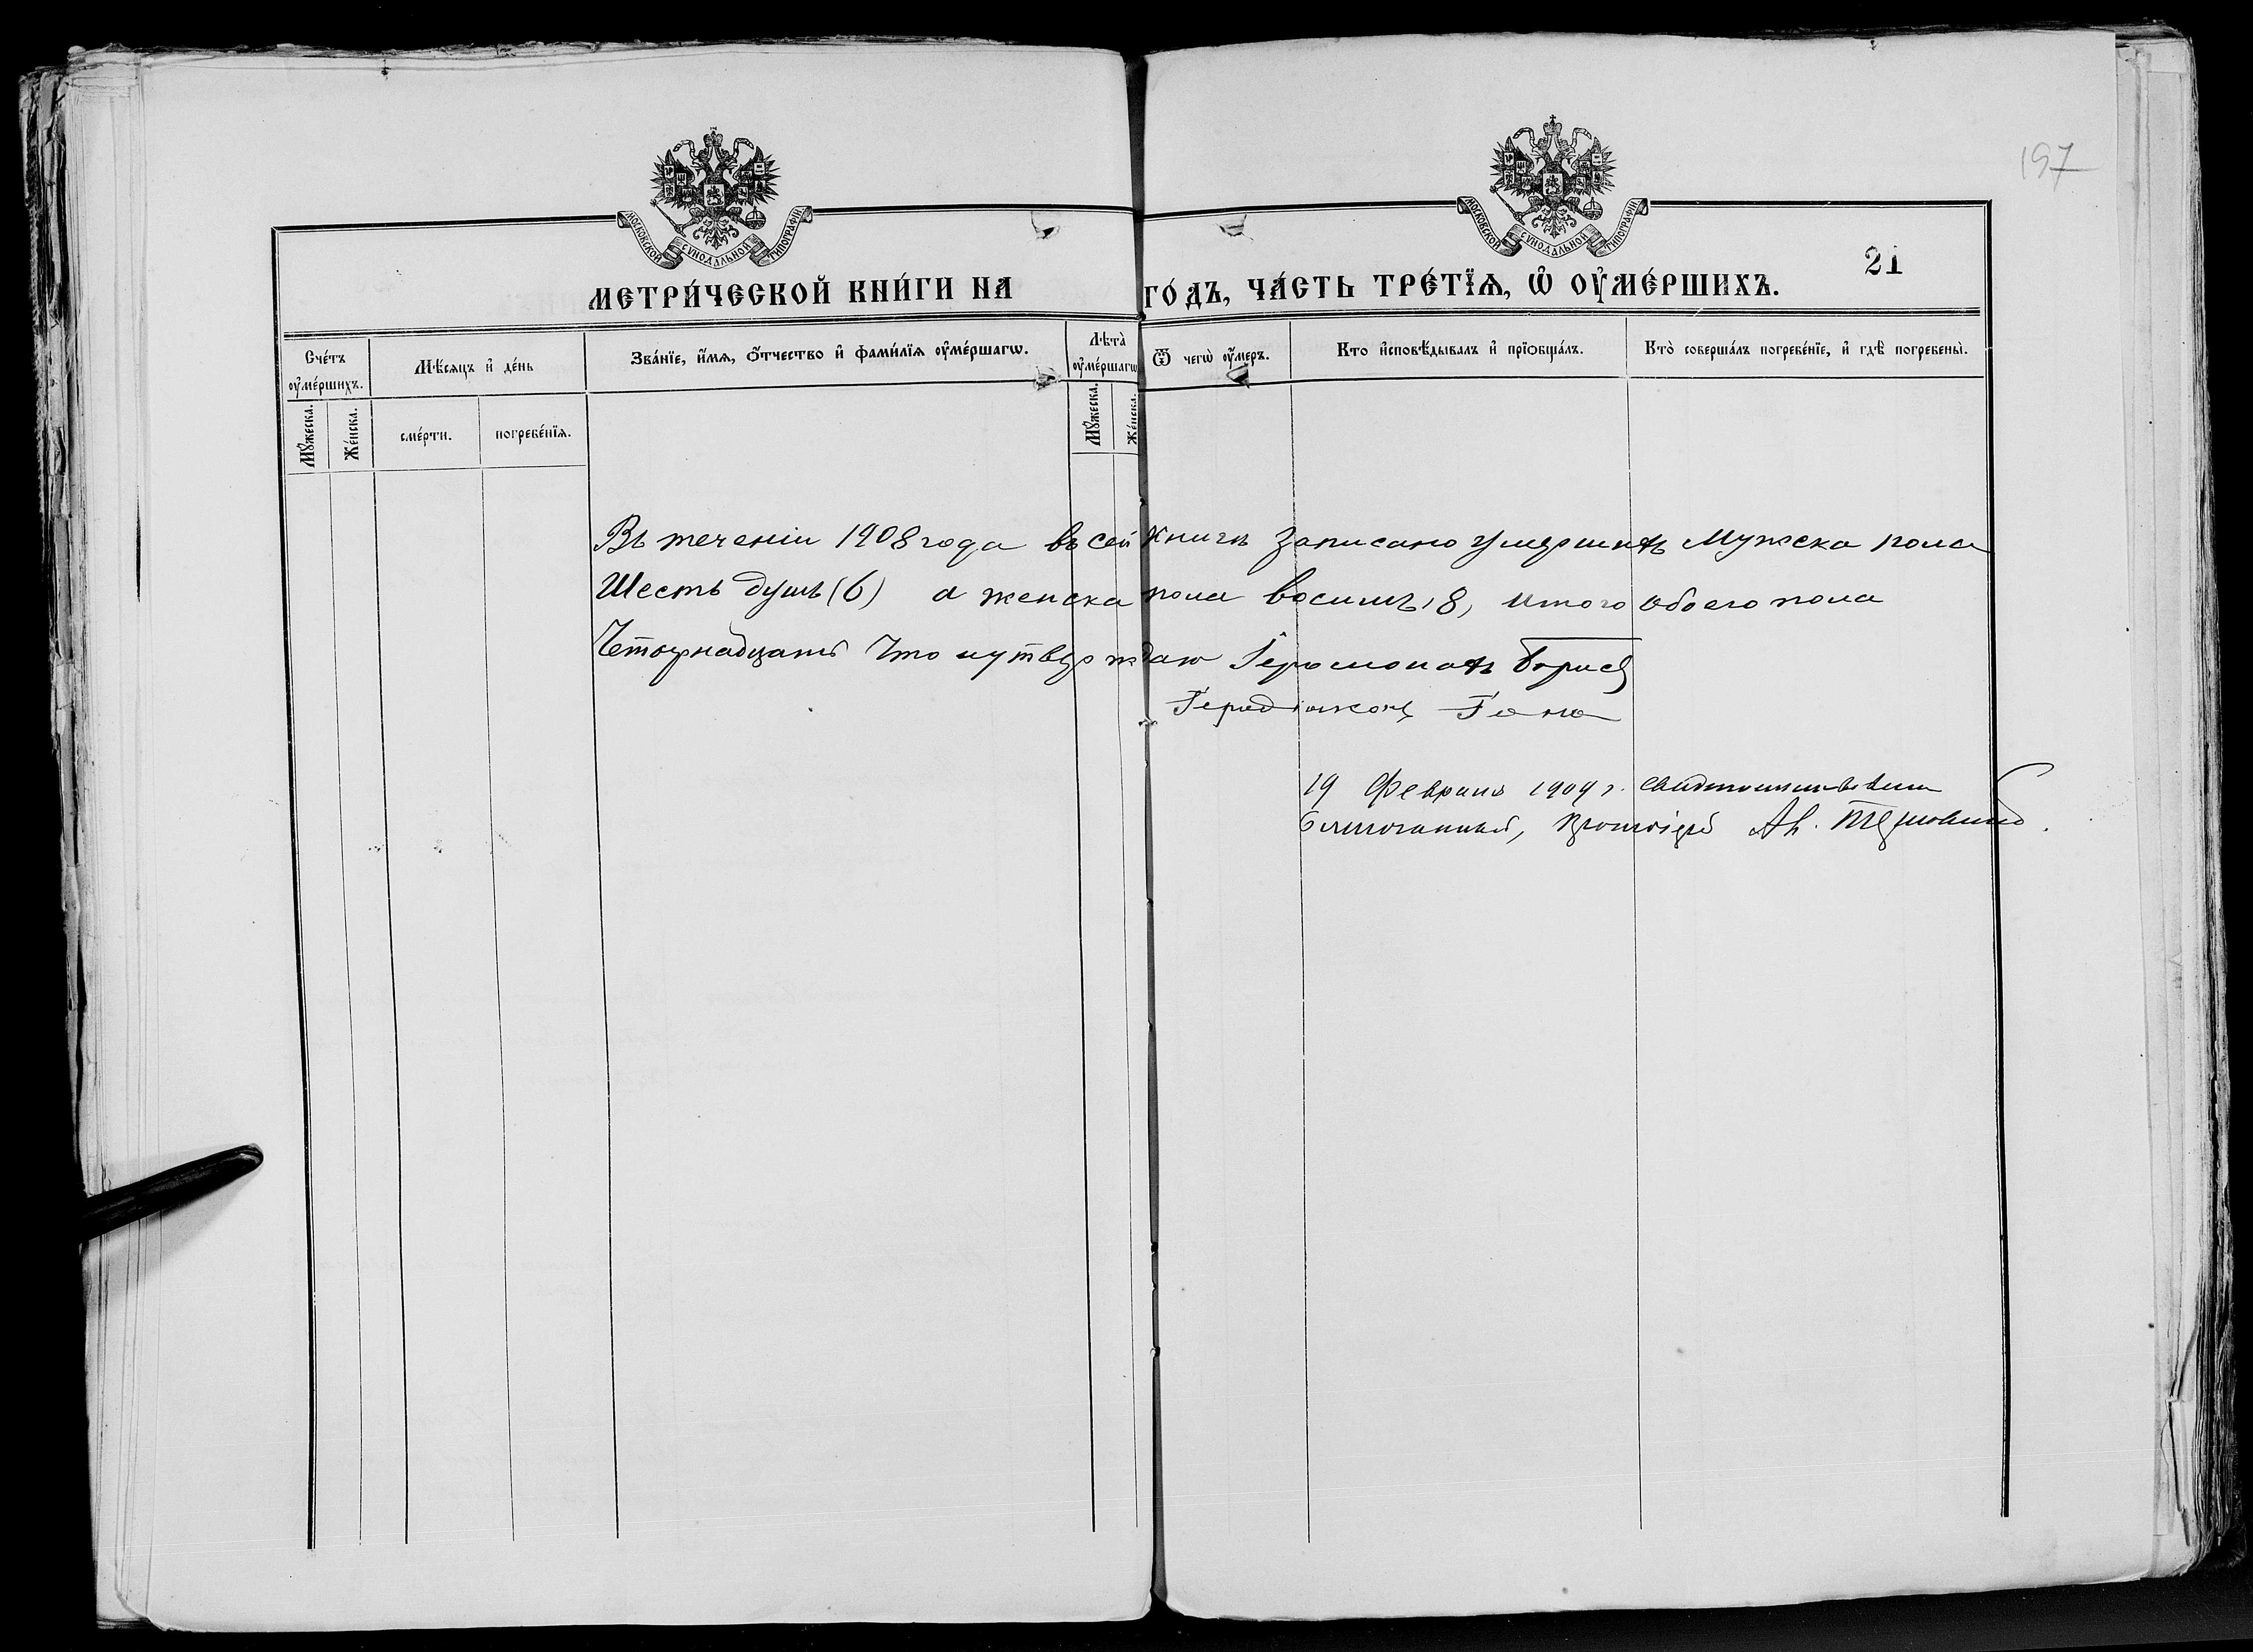 197
МОСКОВСКОЙ СѴНОДАЛЬНОЙ ТИПОГРАФІИ.
МОСКОВСКОЙ СѴНОДАЛЬНОЙ ТИПОГРАФІИ.
21
МЕТРИ́ЧЕСКОЙ КНИ́ГИ НА ГО́ДЪ, ЧА́СТЬ ТРЕ́ТЇѦ, Ѡ҆ ОУ҆МЕ́РШИХЪ.
Сче́тъ оу҆ме́ршихъ.
Мѣ́сяцъ и҆ де́нь
Зва́нїе, и҆́мѧ, ѻ҆́тчество и҆ фами́лїѧ оу҆ме́ршагѡ.
Лѣта̀ оу҆ме́ршагѡ
Ѿ чегѡ̀ оу҆́меръ.
Кто и҆сповѣ́дывалъ и҆ прїѡбща́лъ.
Кто̀ соверша́лъ погребе́нїе, и҆ гдѣ̀ погребены̀.
Мꙋ́жеска.
Же́нска.
сме́рти.
погребе́нїѧ.
Мꙋ́жеска.
Же́нска.
Въ теченіи 1908 года въ сей книгѣ записано умершихъ Мужеска пола
Шесть душъ (6) а женска пола восимъ, 8, итого обоего пола
Четырнадцать Что и утверждаю Іеромонахъ Борисъ
Іеродіаконъ Іона
19 Февраля 1909 г. свидѣтельствовали
благочинный, протоіерей Ал.